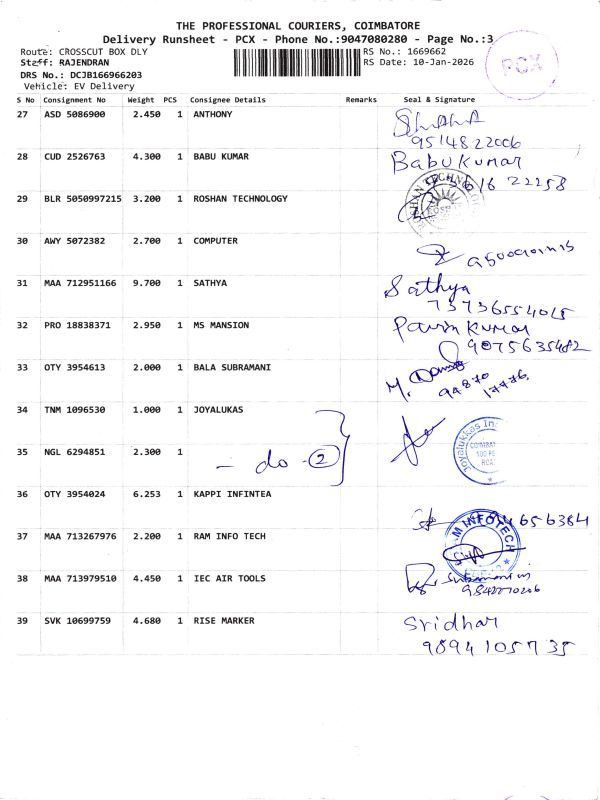 THE PROFESSIONAL COURIERS, COIMBATORE
Delivery Runsheet - PCX - Phone No.:9047080280 - Page No.:3
Route: CROSSCUT BOX DLY RS No.: 1669662
Staff: RAJENDRAN RS Date: 10-Jan-2026
PCX
DRS No.: DCJB166966203
Vehicle: EV Delivery
S No Consignment No Weight PCS Consignee Details Remarks Seal & Signature
27 ASD 5086900 2.450 1 ANTHONY
9514822006
28 CUD 2526763 4.300 1 BABU KUMAR Babu Kumar
22258
29 BLR 5050997215 3.200 1 ROSHAN TECHNOLOGY
30 AWY 5072382 2.700 1 COMPUTER
31 MAA 712951166 9.700 1 SATHYA Sathya
7373655401
32 PRO 18838371 2.950 1 MS MANSION Kumar
9075635482
33 OTY 3954613 2.000 1 BALA SUBRAMANI M.
94870
17776
34 TNM 1096530 1.000 1 JOYALUKAS
35 NGL 6294851 2.300 1 - do - 2
Joyalukkas
36 OTY 3954024 6.253 1 KAPPI INFINTEA
656384
37 MAA 713267976 2.200 1 RAM INFO TECH
INFOTECH
38 MAA 713979510 4.450 1 IEC AIR TOOLS
39 SVK 10699759 4.680 1 RISE MARKER Sridhar
9894105735